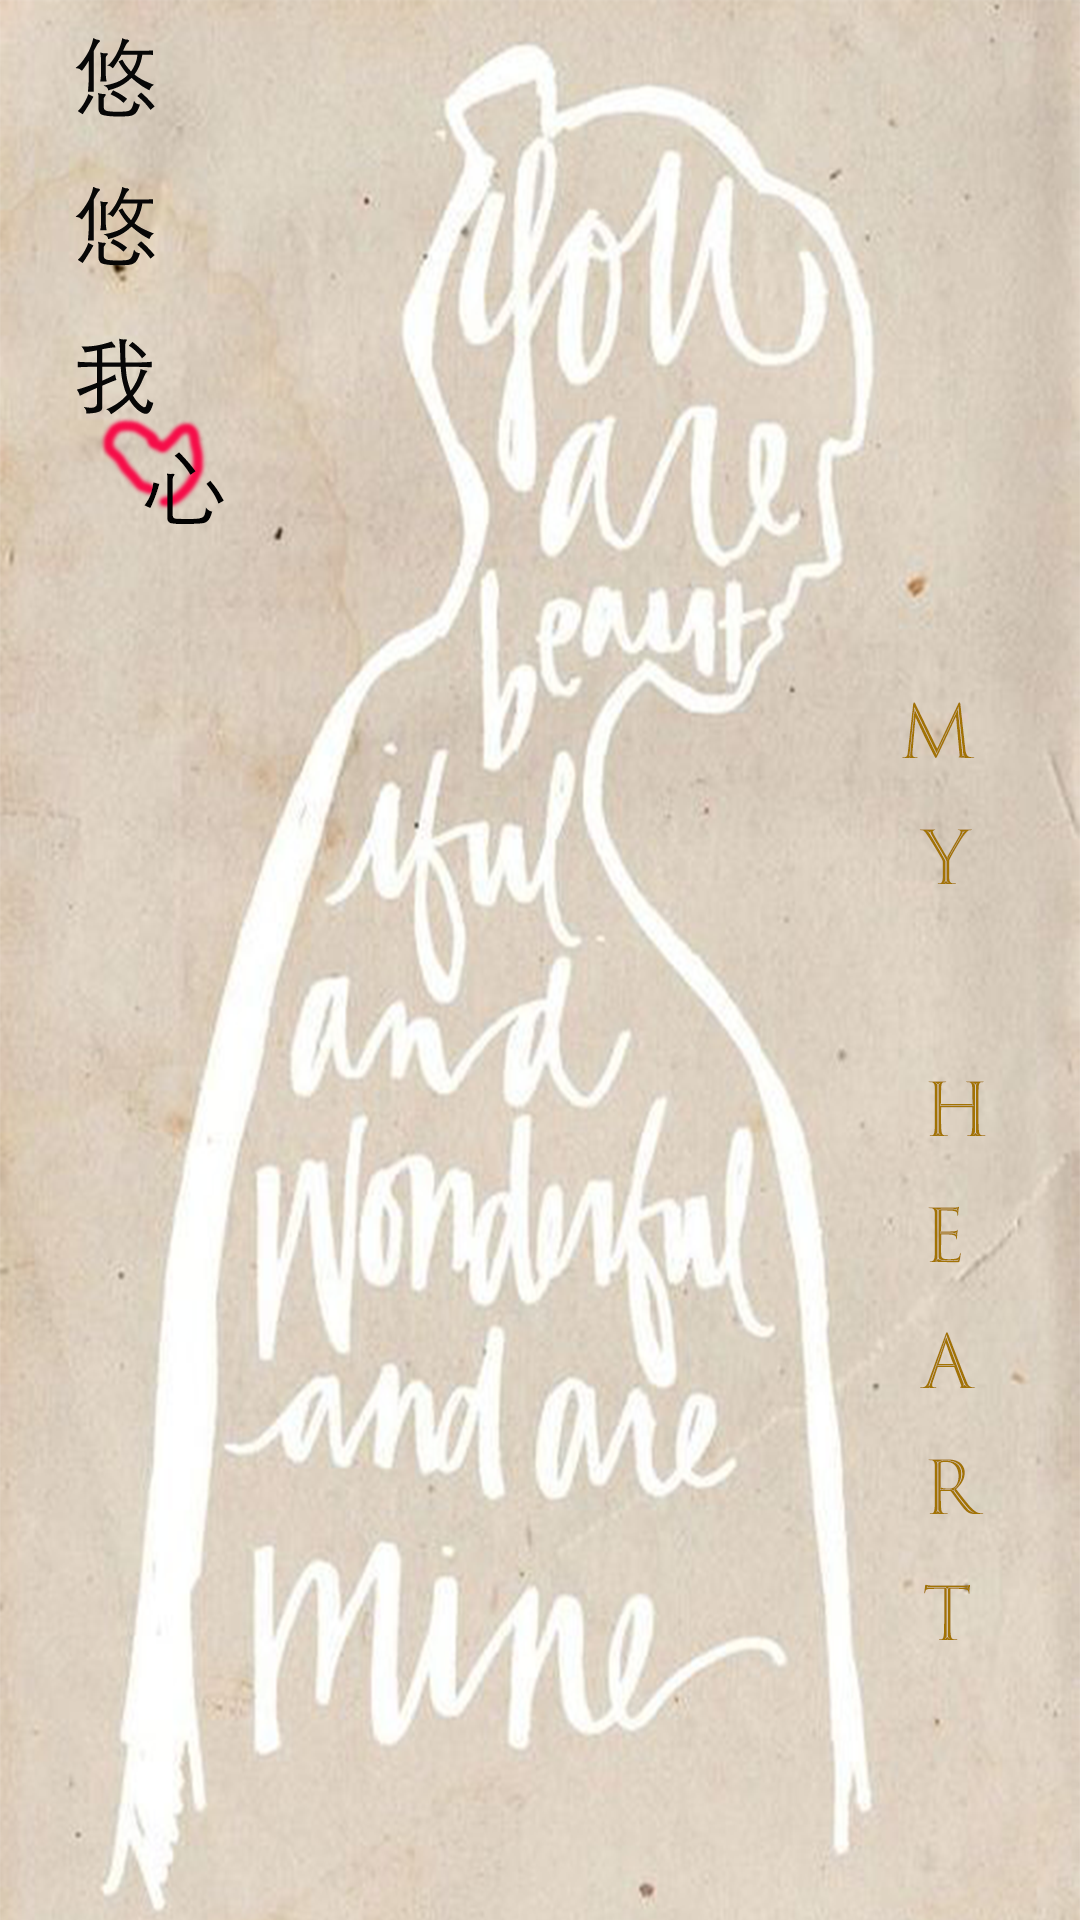 悠悠我心
you
are
beaut
iful
and
wonderful
and are
mine
MY HEART